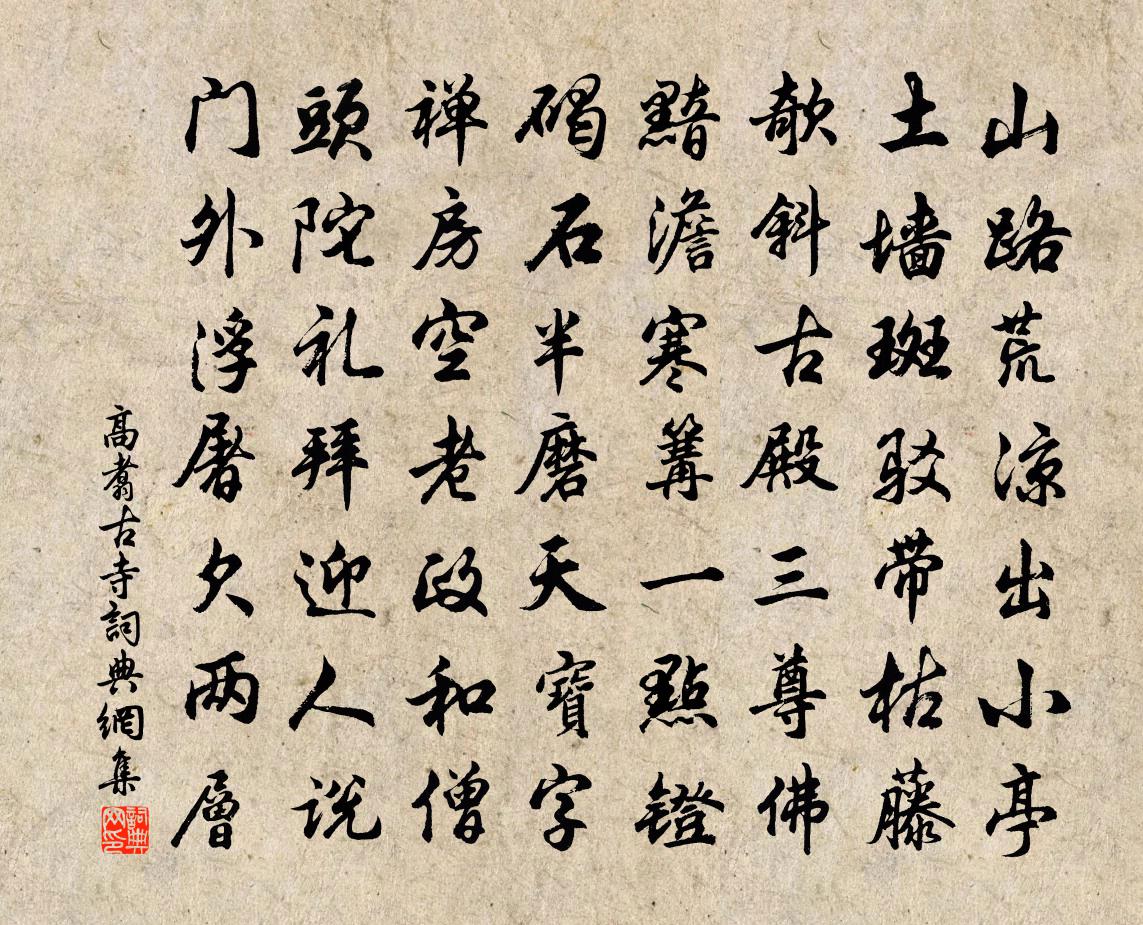 山路荒涼出小亭
土墙斑驳带枯藤
欹斜古殿三尊佛
黯澹寒篝一點鐙
碣石半磨天寶字
禅房空老政和僧
頭陀礼拜迎人说
门外浮屠欠两層
高翥古寺詞典網集
詞典网印